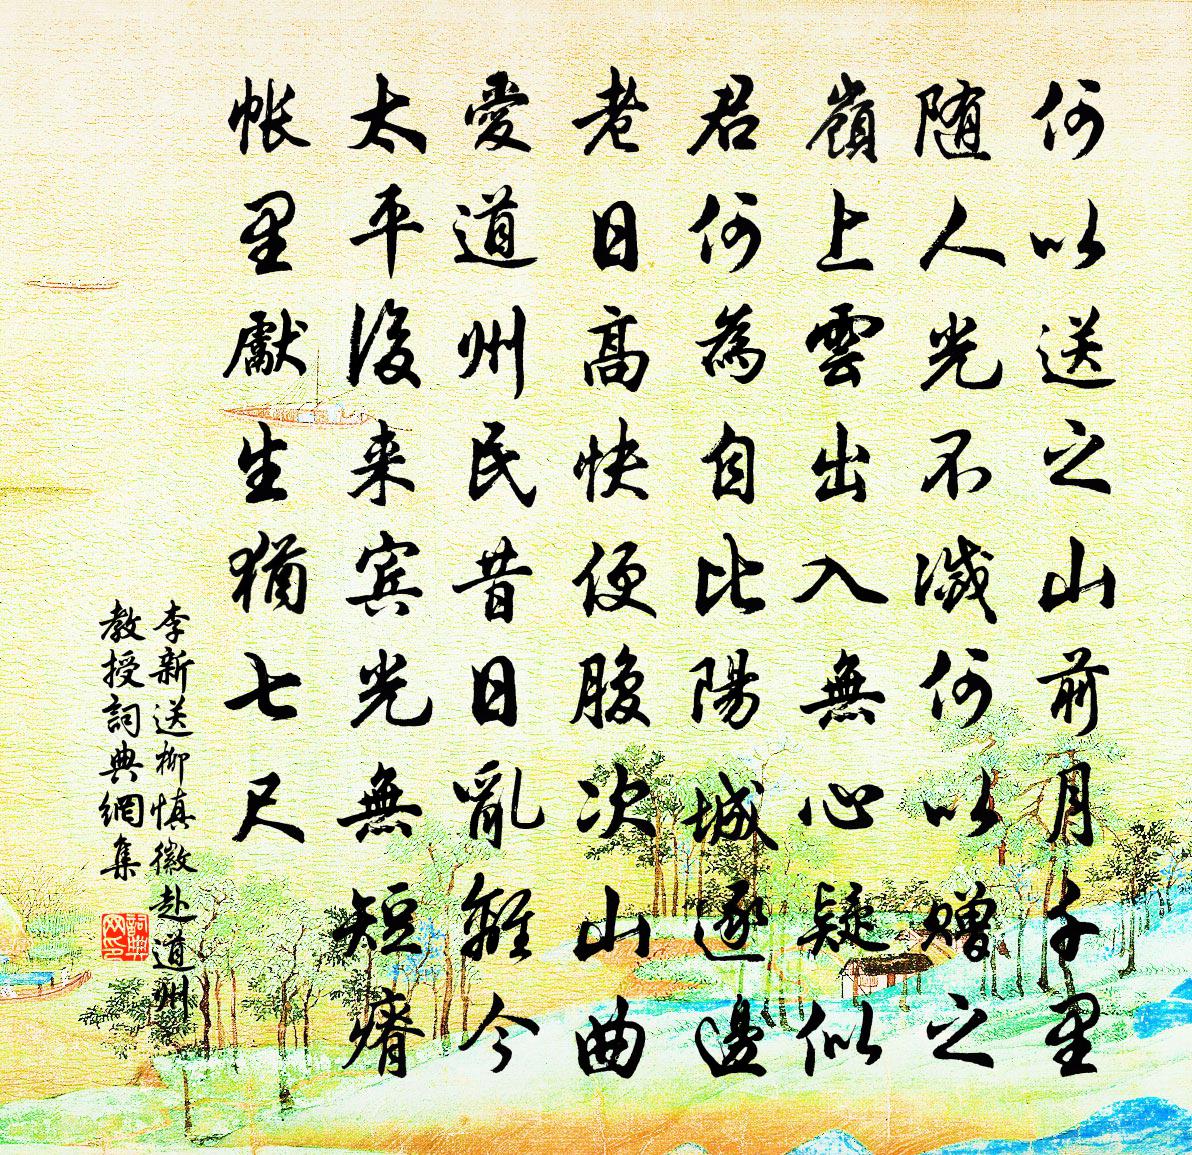 何以送之山前月千里
随人光不滅何以赠之
嶺上雲出入無心疑似
君何為自比陽城逐邊
老日高快便腹次山曲
愛道州民昔日亂離今
太平後来宾光無短瘠
帐里獻生猶七尺
李新送柳慎徽赴道州
教授詞典網集
詞典
网印